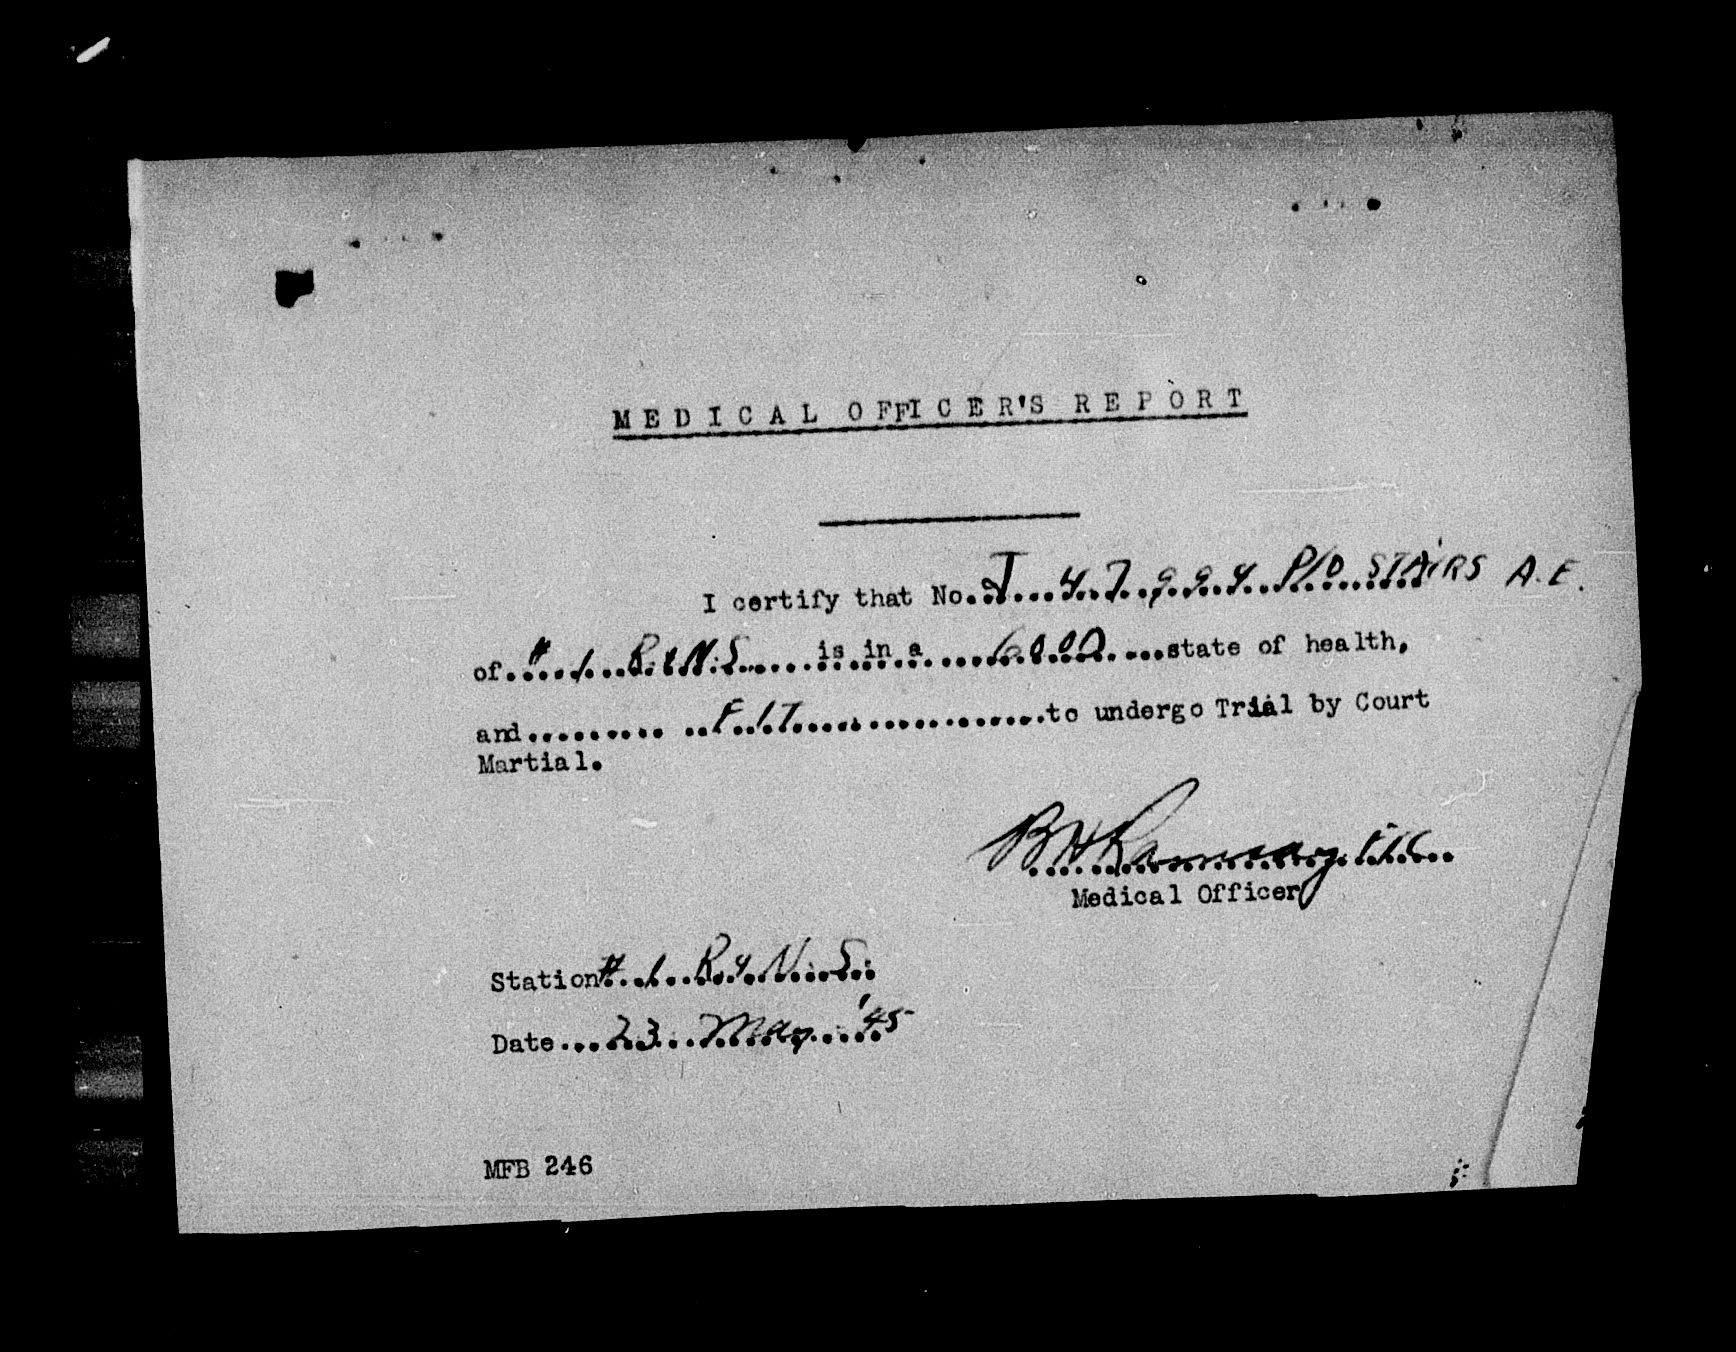 MEDICAL OFFICER'S REPORT
I certify that No. J 47994 P/O STAIRS A.E.
of # 1 R&NS is in a GOOD state of health,
and FIT to undergo Trial by Court
Martial.
BH Ramsay F/L
Medical Officer
Station # 1 R&NS
Date 23 May '45
MFB 246